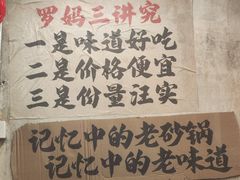 罗妈三讲究
一是味道好吃
二是价格便宜
三是份量汪实
记忆中的老砂锅
记忆中的老味道